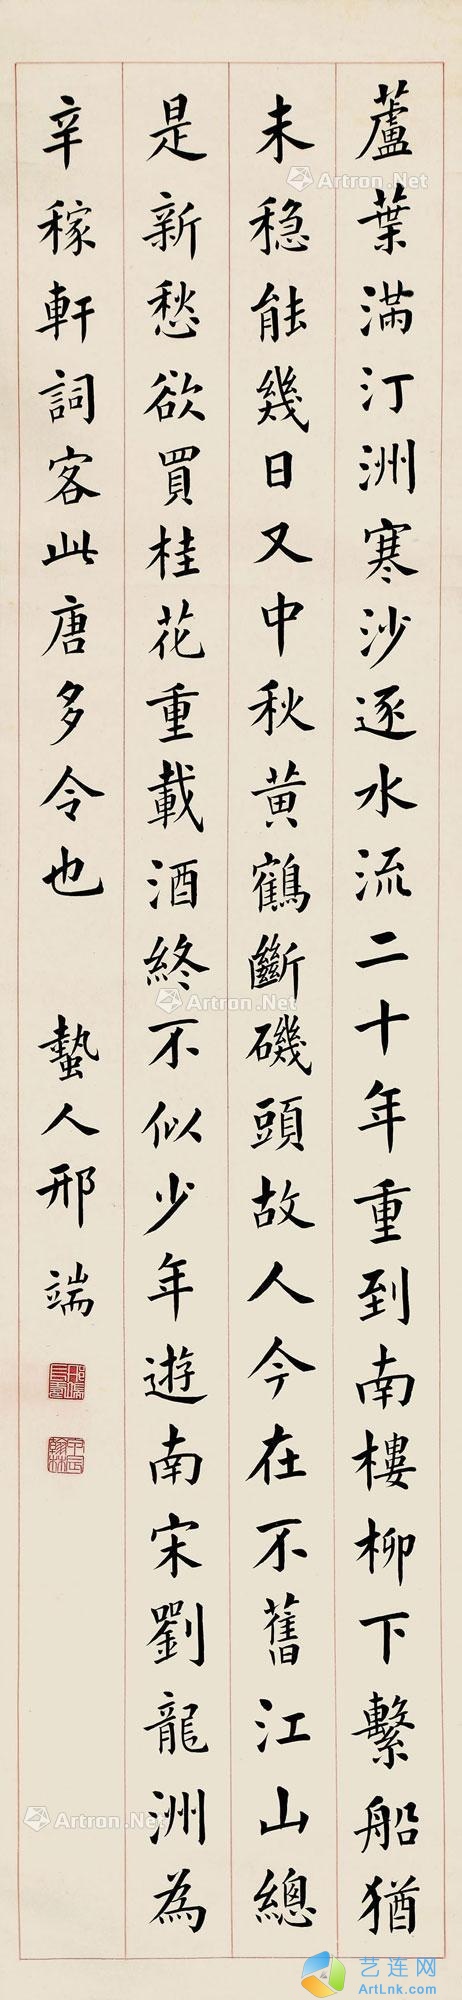 蘆葉滿汀洲寒沙逐水流二十年重到南樓柳下繫船猶
未穏能幾日又中秋黃鶴斷磯頭故人今在不舊江山總
是新愁欲買桂花重載酒終不似少年遊南宋劉龍洲為
辛稼軒詞客此唐多令也 蟄人邢端
甲辰翰林
Artron.Net
Artron.Net
Artron.Net
Artron.Net
Artron.Net
艺连网
ArtLink.Com